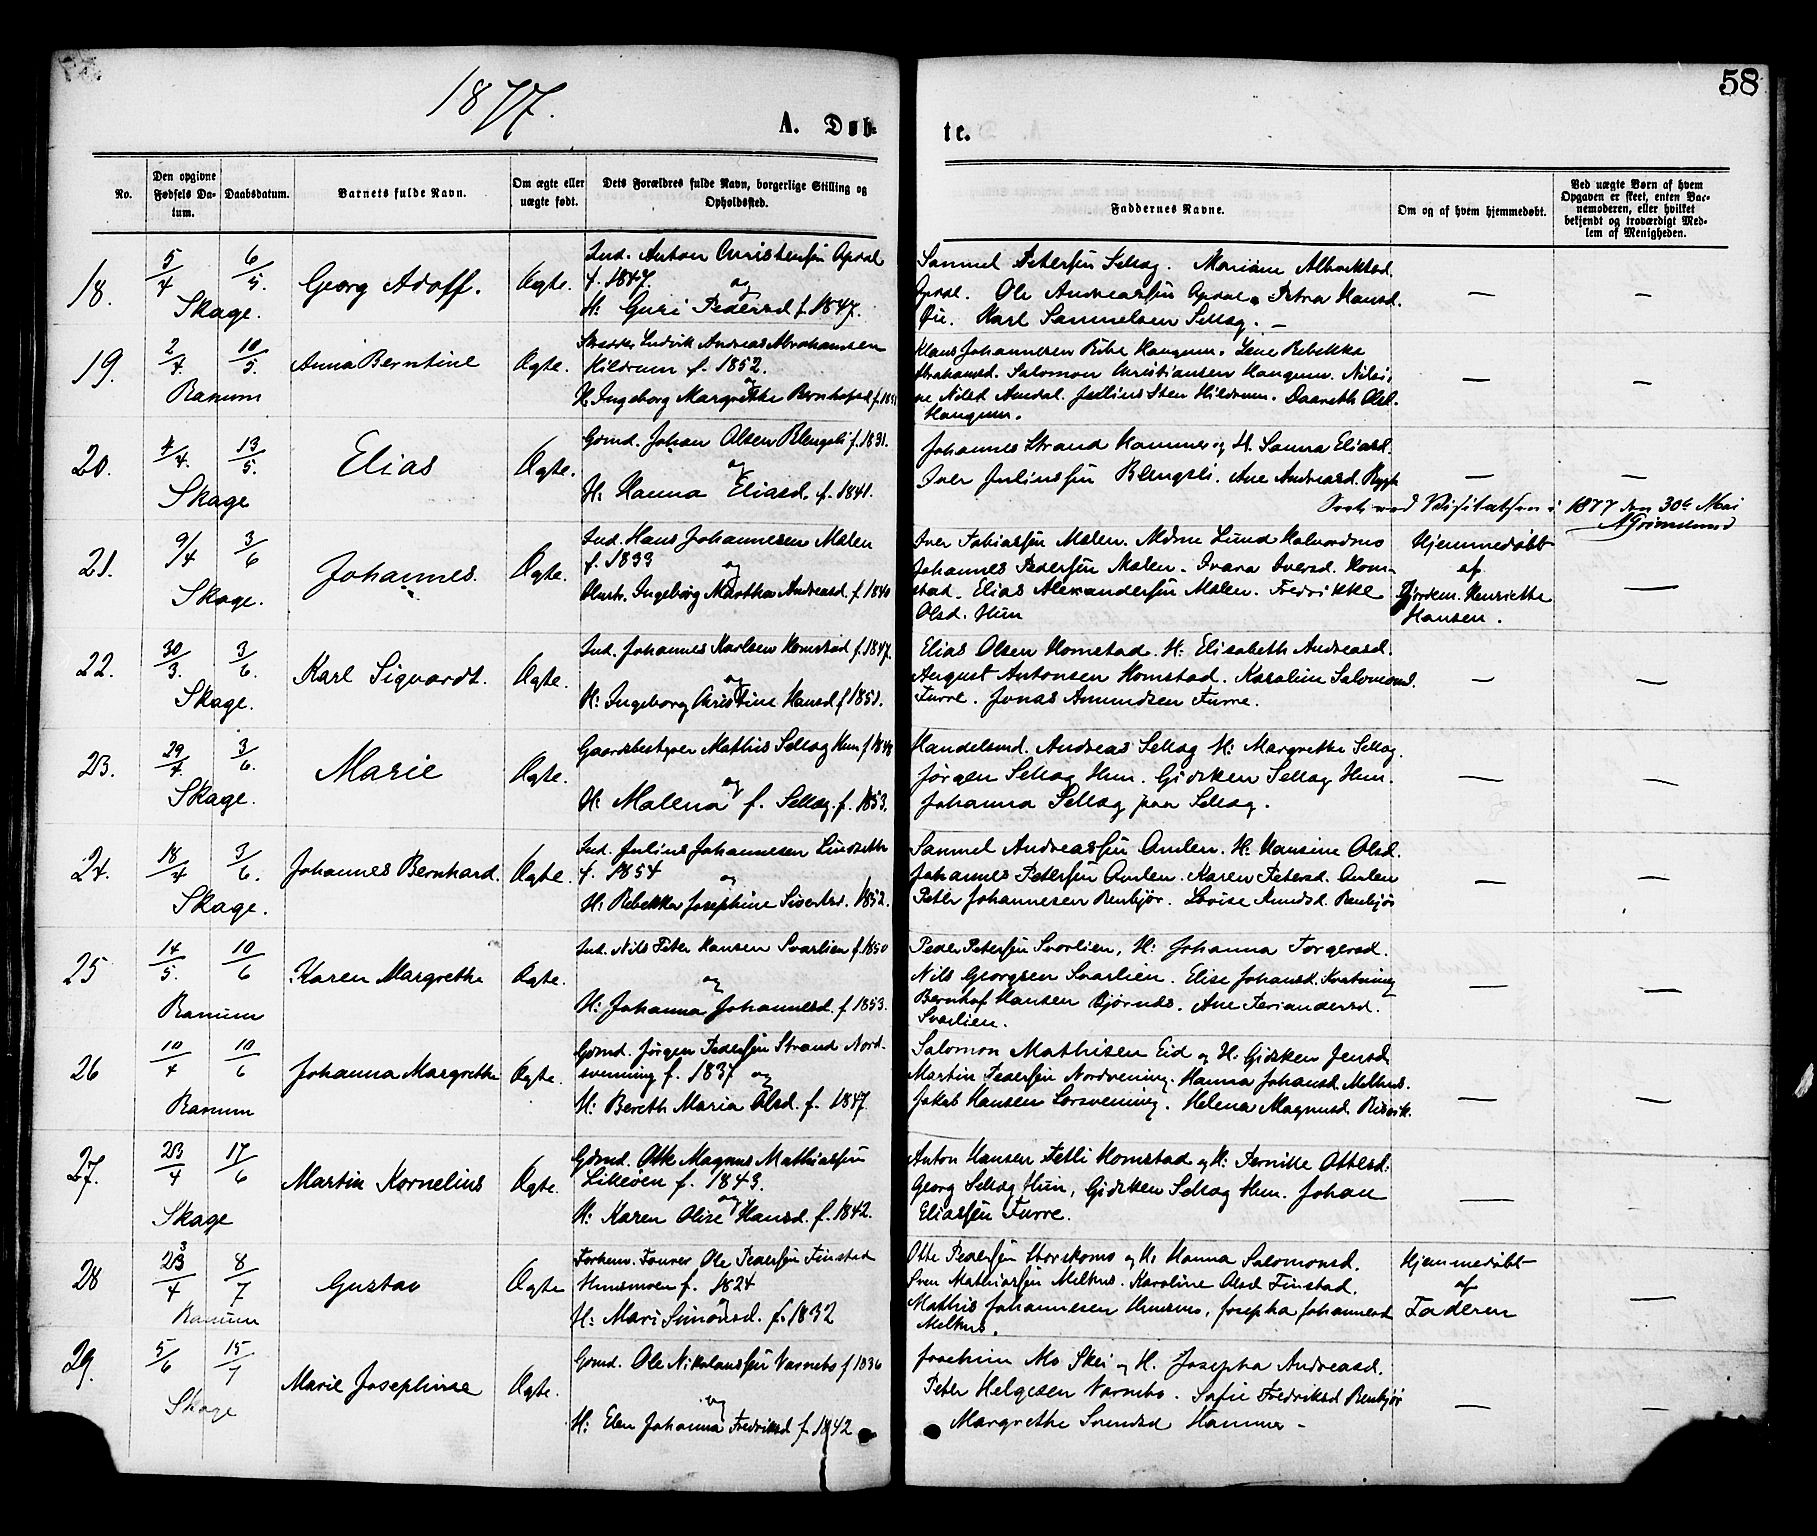 58
1877.
A. Døb-
te.
No.
Den opgivne Fødsels Da-tum.
Daabsdatum.
Barnets fulde Navn.
Om ægte eller uægte født.
Dets Forældres fulde Navn, borgerlige Stilling og Opholdssted.
Faddernes Navne.
Om og af hvem hjemmedøbt.
Ved uægte Børn af hvem Opgaven er skeet, enten Bar-nemoderen, eller hvilket bekjendt og troværdigt Med-lem af Menigheden.
18. 5/4 6/5. Georg Adolf. Ægte.
Skage.
Ind. Anton Christensen Opdal
f. 1847. og
H: Guri Pedersd f. 1847.
Samuel Petersen Sellæg. Mariane Albrektsd.
Opdal. Ole Andreassen Opdal og Petra Hansd.
Øie. Karl Samuelsen Sellæg. —
19. 2/4 10/5. Anna Berntine Ægte.
Ranum
Skrædder Ludvik Andreas Abrahamsen
Hildrum f. 1852. og
H. Ingeborg Margrethe Bernhofsd f. 1851
Klaus Johannesen Ribe Haugum. Lene Rebekka
Abrahamsd. Salomon Christiansen Haugum. Nikoli-
ne Nilsd. Amdal. Julius Sten Hildrum. Daareth Olsd.
Haugum.
20. 4/4. 13/5. Elias Ægte.
Skage
Gbmd. Johan Olsen Blengsli f. 1831.
og
H: Hanna Eliasd. f. 1841.
Johannes Strand Hammer og H. Sanna Eliasd.
Iver Juliussen Blengsli. Ane Andreasd. Rygh
Visitatsen i 1877 den 30te Mai
AGrimelund
21. 9/4 3/6 Johannes. Ægte.
Skage.
Ind. Hans Johannesen Mælen
f. 1833 og
Hustr. Ingeborg Martha Andreasd. f. 1840
Iver Tobiassen Mælen. Mdme Lund Halvordmo
Johannes Pedersen Mælen. Ivara Iversd. Hom-
stad. Elias Alexandersen Mælen. Fredrikke
Olsd. Hun
Hjemmedøbt
af
Gjordem. Henriette
Hansen.
22. 30/3. 3/6. Karl Sigvardt. Ægte.
Skage.
Ind. Johannes Karlsen Homstad f. 1847.
og
H: Ingeborg Christine Hansd f 1851.
Elias Olsen Homstad. H: Elisabeth Andreasd.
August Antonsen Homstad. Karoline Salomonsd.
Furre. Jonas Amundsen Furre.
23. 29/4 3/6. Marie Ægte.
Skage.
Gaardsbestyrer Mathis Sellæg Hun f 1849
og
H: Malena f. Sellæg. f. 1853.
Handelsmd. Andreas Sellæg H: Margrethe Sellæg.
Jørgen Sellæg Hun. Gidsken Sellæg Hun.
Johanna Sellæg paa Sellæg.
24. 18/4 3/6. Johannes Bernhard. Ægte.
Skage.
Ind. Julius Johannesen Lindseth
f. 1854 og
H: Rebekka Josephine Sivertsd. 1852.
Samuel Andreassen Amlen. H: Hansine Olsd.
Johannes Petersen Amlen. Karen Petersd. Amlen
Peter Johannesen Renbjør. Lovise Amdsd. Renbjør
25 14/5. 10/6 Karen Margrethe Ægte.
Ranum
Ind. Nils Peter Hansen Svarlien f. 1850
og
H: Johanna Johannesd. f. 1853.
Peder Petersen Svarlien, H: Johanna Torgersd.
Nils Georgsen Svarlien. Elise Johansd. Kvatning
Bernhof Hansen Bjørnes. Ane Feriandersd.
Svarlien.
26 10/4 10/6 Johanna Margrethe Ægte.
Ranum
Gbmd. Jørgen Pedersen Strand Nord-
svenning f. 1837 og
H: Bereth Maria Olsd. f. 1847.
Salomon Mathisen Eid og H: Gidsken Jensd.
Martin Pedersen Nordvening. Hanna Johansd. Melhus.
Jakob Hansen Sørsvening. Helena Magnusd. Risvik.
27. 23/4 17/6 Martin Kornelius Ægte.
Skage
Gbmd. Otte Magnus Mathiassen
Liheven f. 1843.
og
H: Karen Olise Hansd. f. 1842.
Anton Hansen Fetli Homstad og H: Pernille Ottesd.
Georg Sellæg Hun, Gidsken Sellæg Hun. Johan
Eliassen Furre.
28 23/4 8/7 Gustav Ægte
Ranum
Forhenv. Ole Pedersen Finstad
Hunsmoen f. 1824
og
H: Mari Simonsd. f. 1832
Otte Pedersen Storekomo og H: Hanna Salomonsd.
Sven Mathiassen Melhus. Karoline Olsd. Finstad.
Mathis Johannesen Hunsmo, Josepha Johannesd
Melhus.
Hjemmedøbt
af
Faderen
29. 5/6 15/7 Marie Josephine Ægte.
Skage
Gbmd. Ole Nikolaussen Varnebo f 1836
og
H: Elen Johanna Fredriksd f. 1842
Joachim Mo Skei og H. Josepha Andreasd.
Peter Helgesen Varnebo. Sofie Fredriksd Renbjør
Margrethe Svendsd Hammer —